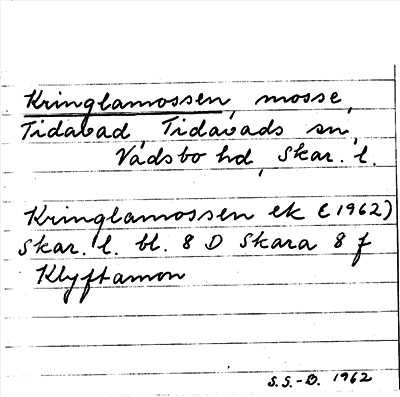 Kringlamossen, mosse,
Tidavad, Tidavads sn,
Vadsbo hd, Skar. l.
Kringlamossen ek (1962)
Skar. l. bl. 8 D Skara 8 f
Klyftamon
S.S.-D. 1962